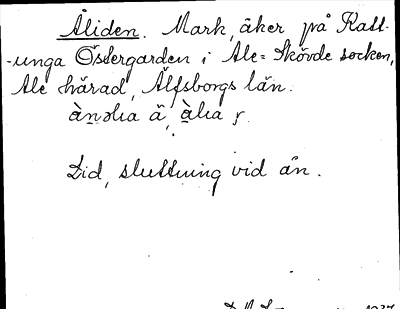 Åliden. Mark, åker på Katt-
-unga Östergården i Ale-Skövde socken,
Ale härad, Älfsborgs län.
Lid, sluttning vid ån.